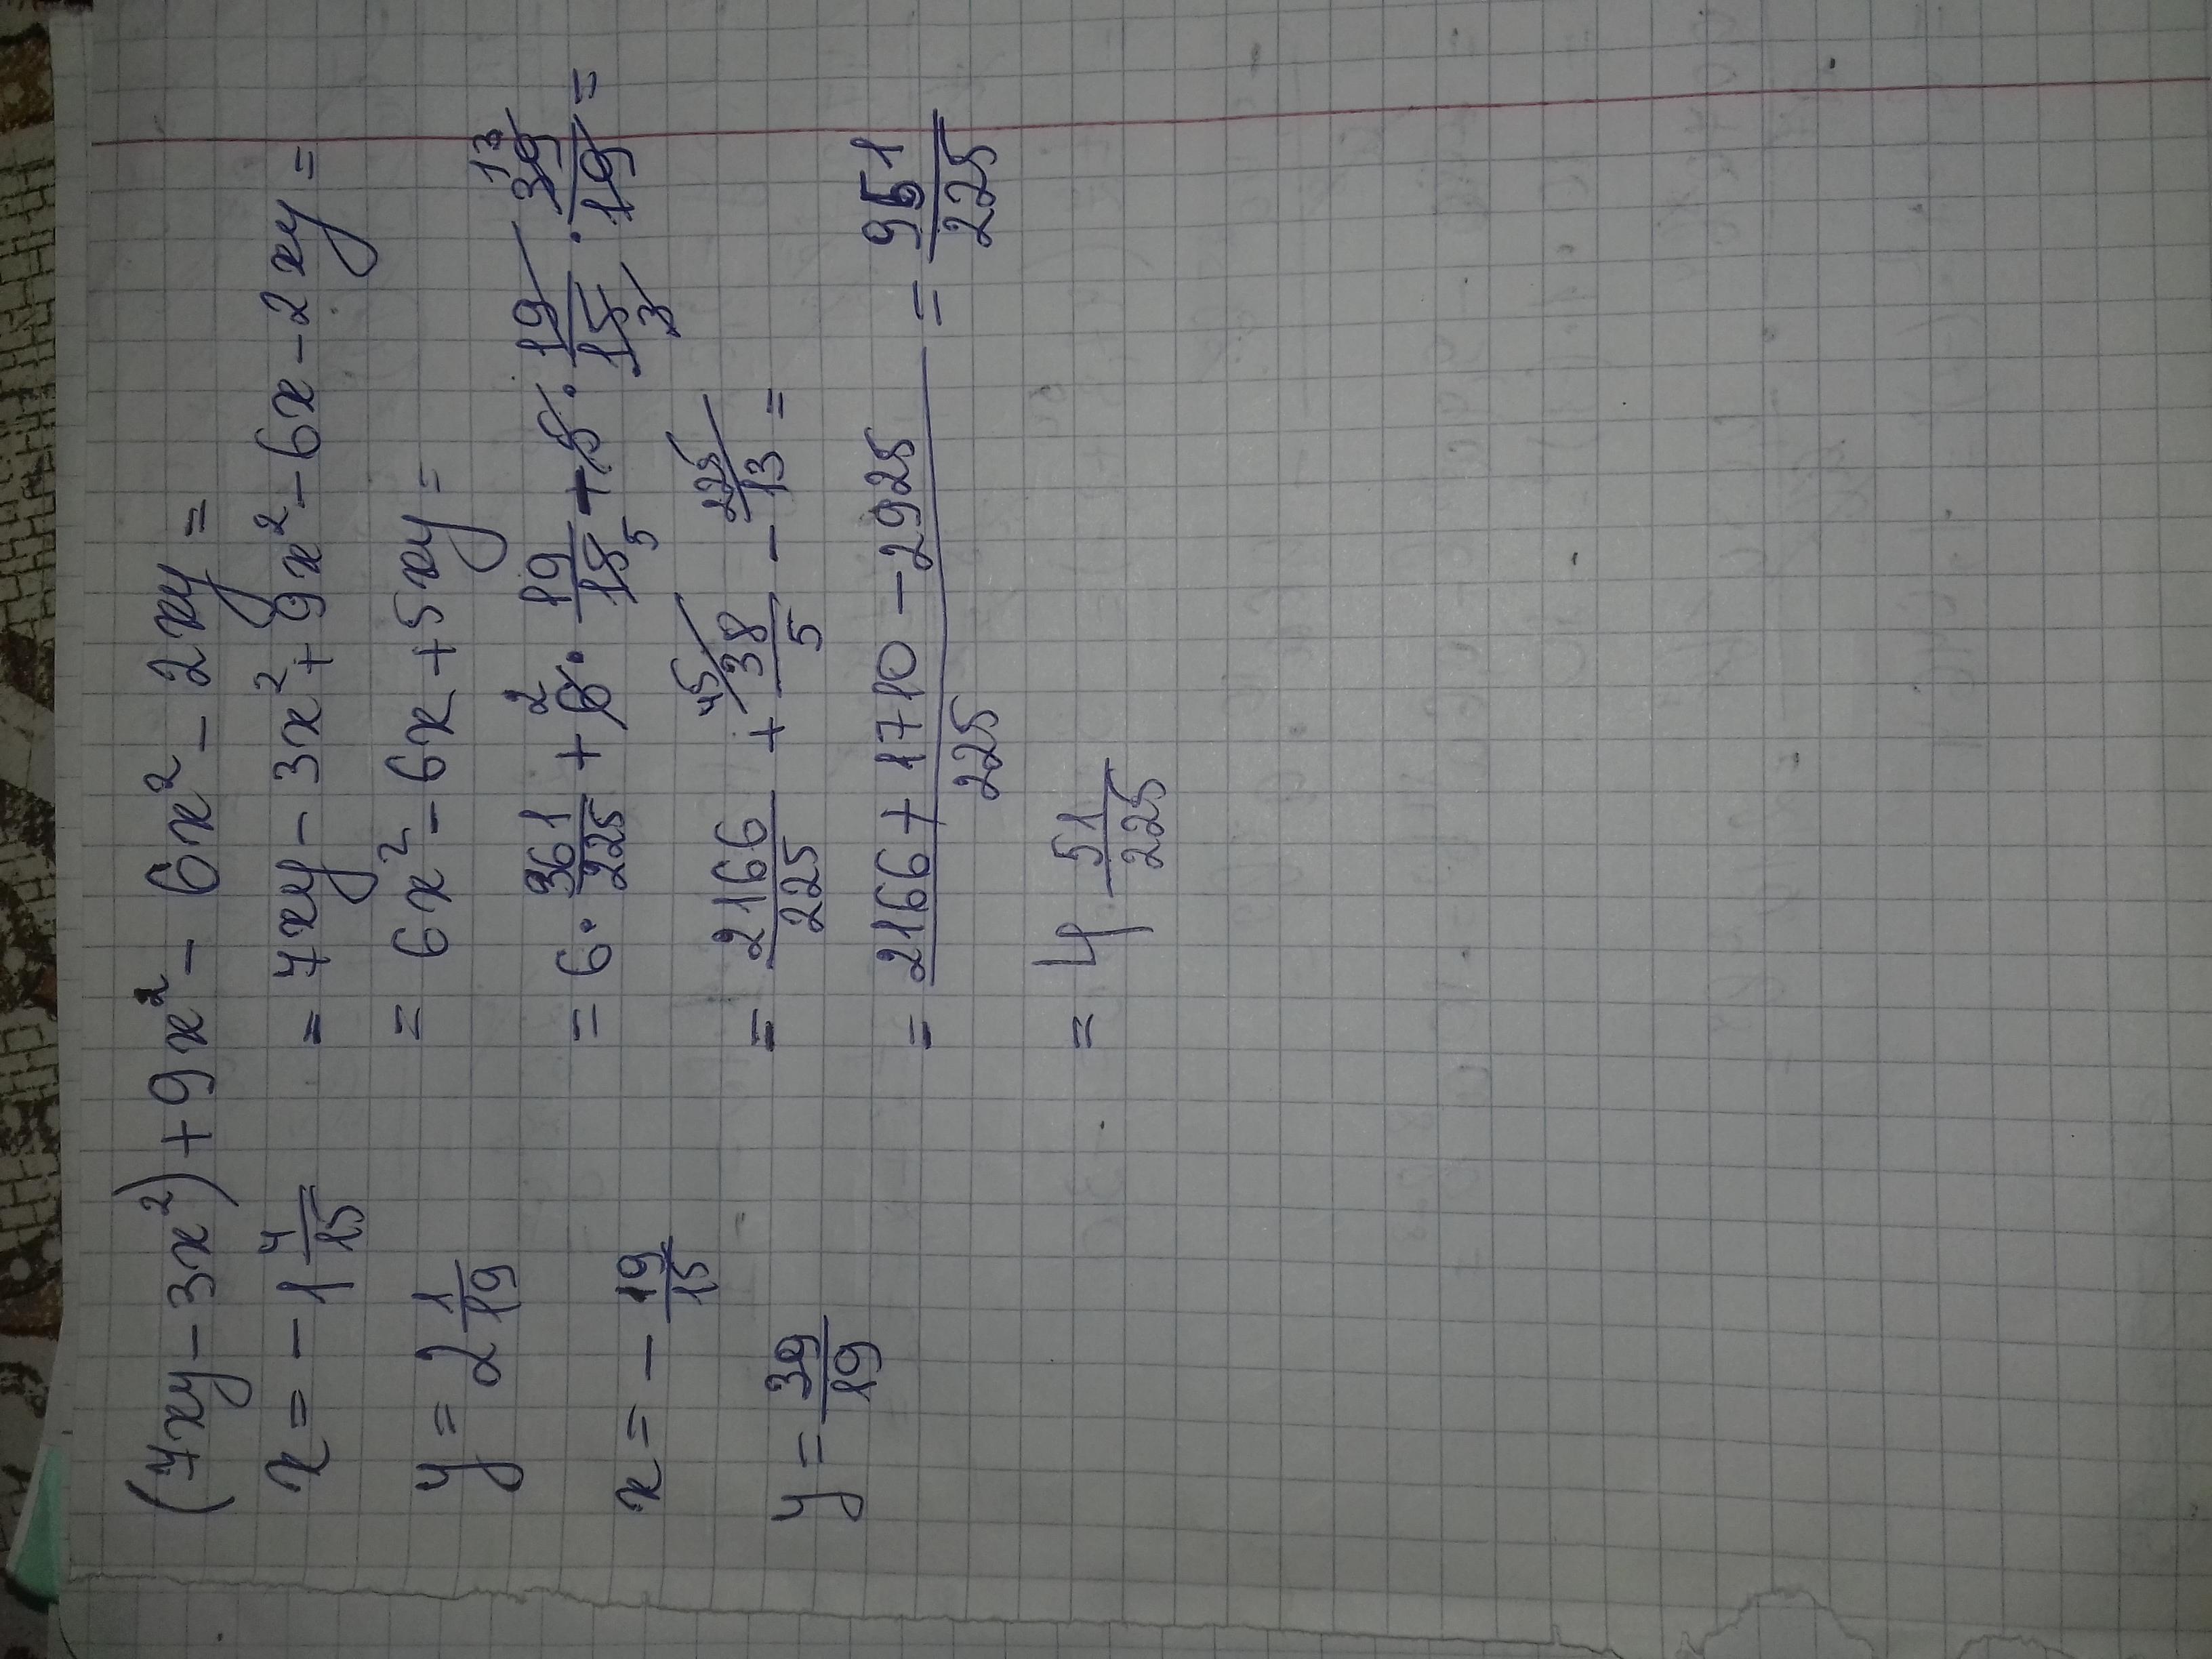 (7xy - 3x²) + 9x² - 6x² - 2xy =
x = - 1 4/15
= 7xy - 3x² + 9x² - 6x - 2xy =
y = 2 1/19
= 6x² - 6x + 5xy =
x = - 19/15
= 6 · 361/225 + 6 2 · 19/15 5 - 5 · 19/15 3 · 39 13/19 =
y = 39/19
= 2166/225 + 45 38/5 - 225/13 =
= 2166 + 1710 - 2925/225 = 951/225
= 4 51/225